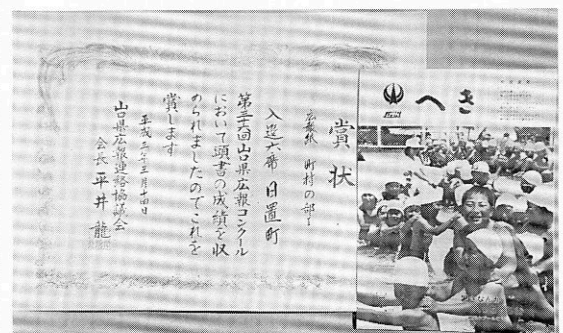 賞状
広報紙 町村の部
入選六席 日置町
山口県広報コンクール
において頭書の成績を収
められましたのでこれを
賞します
山口県広報連絡協議会
会長 平井 龍
へき